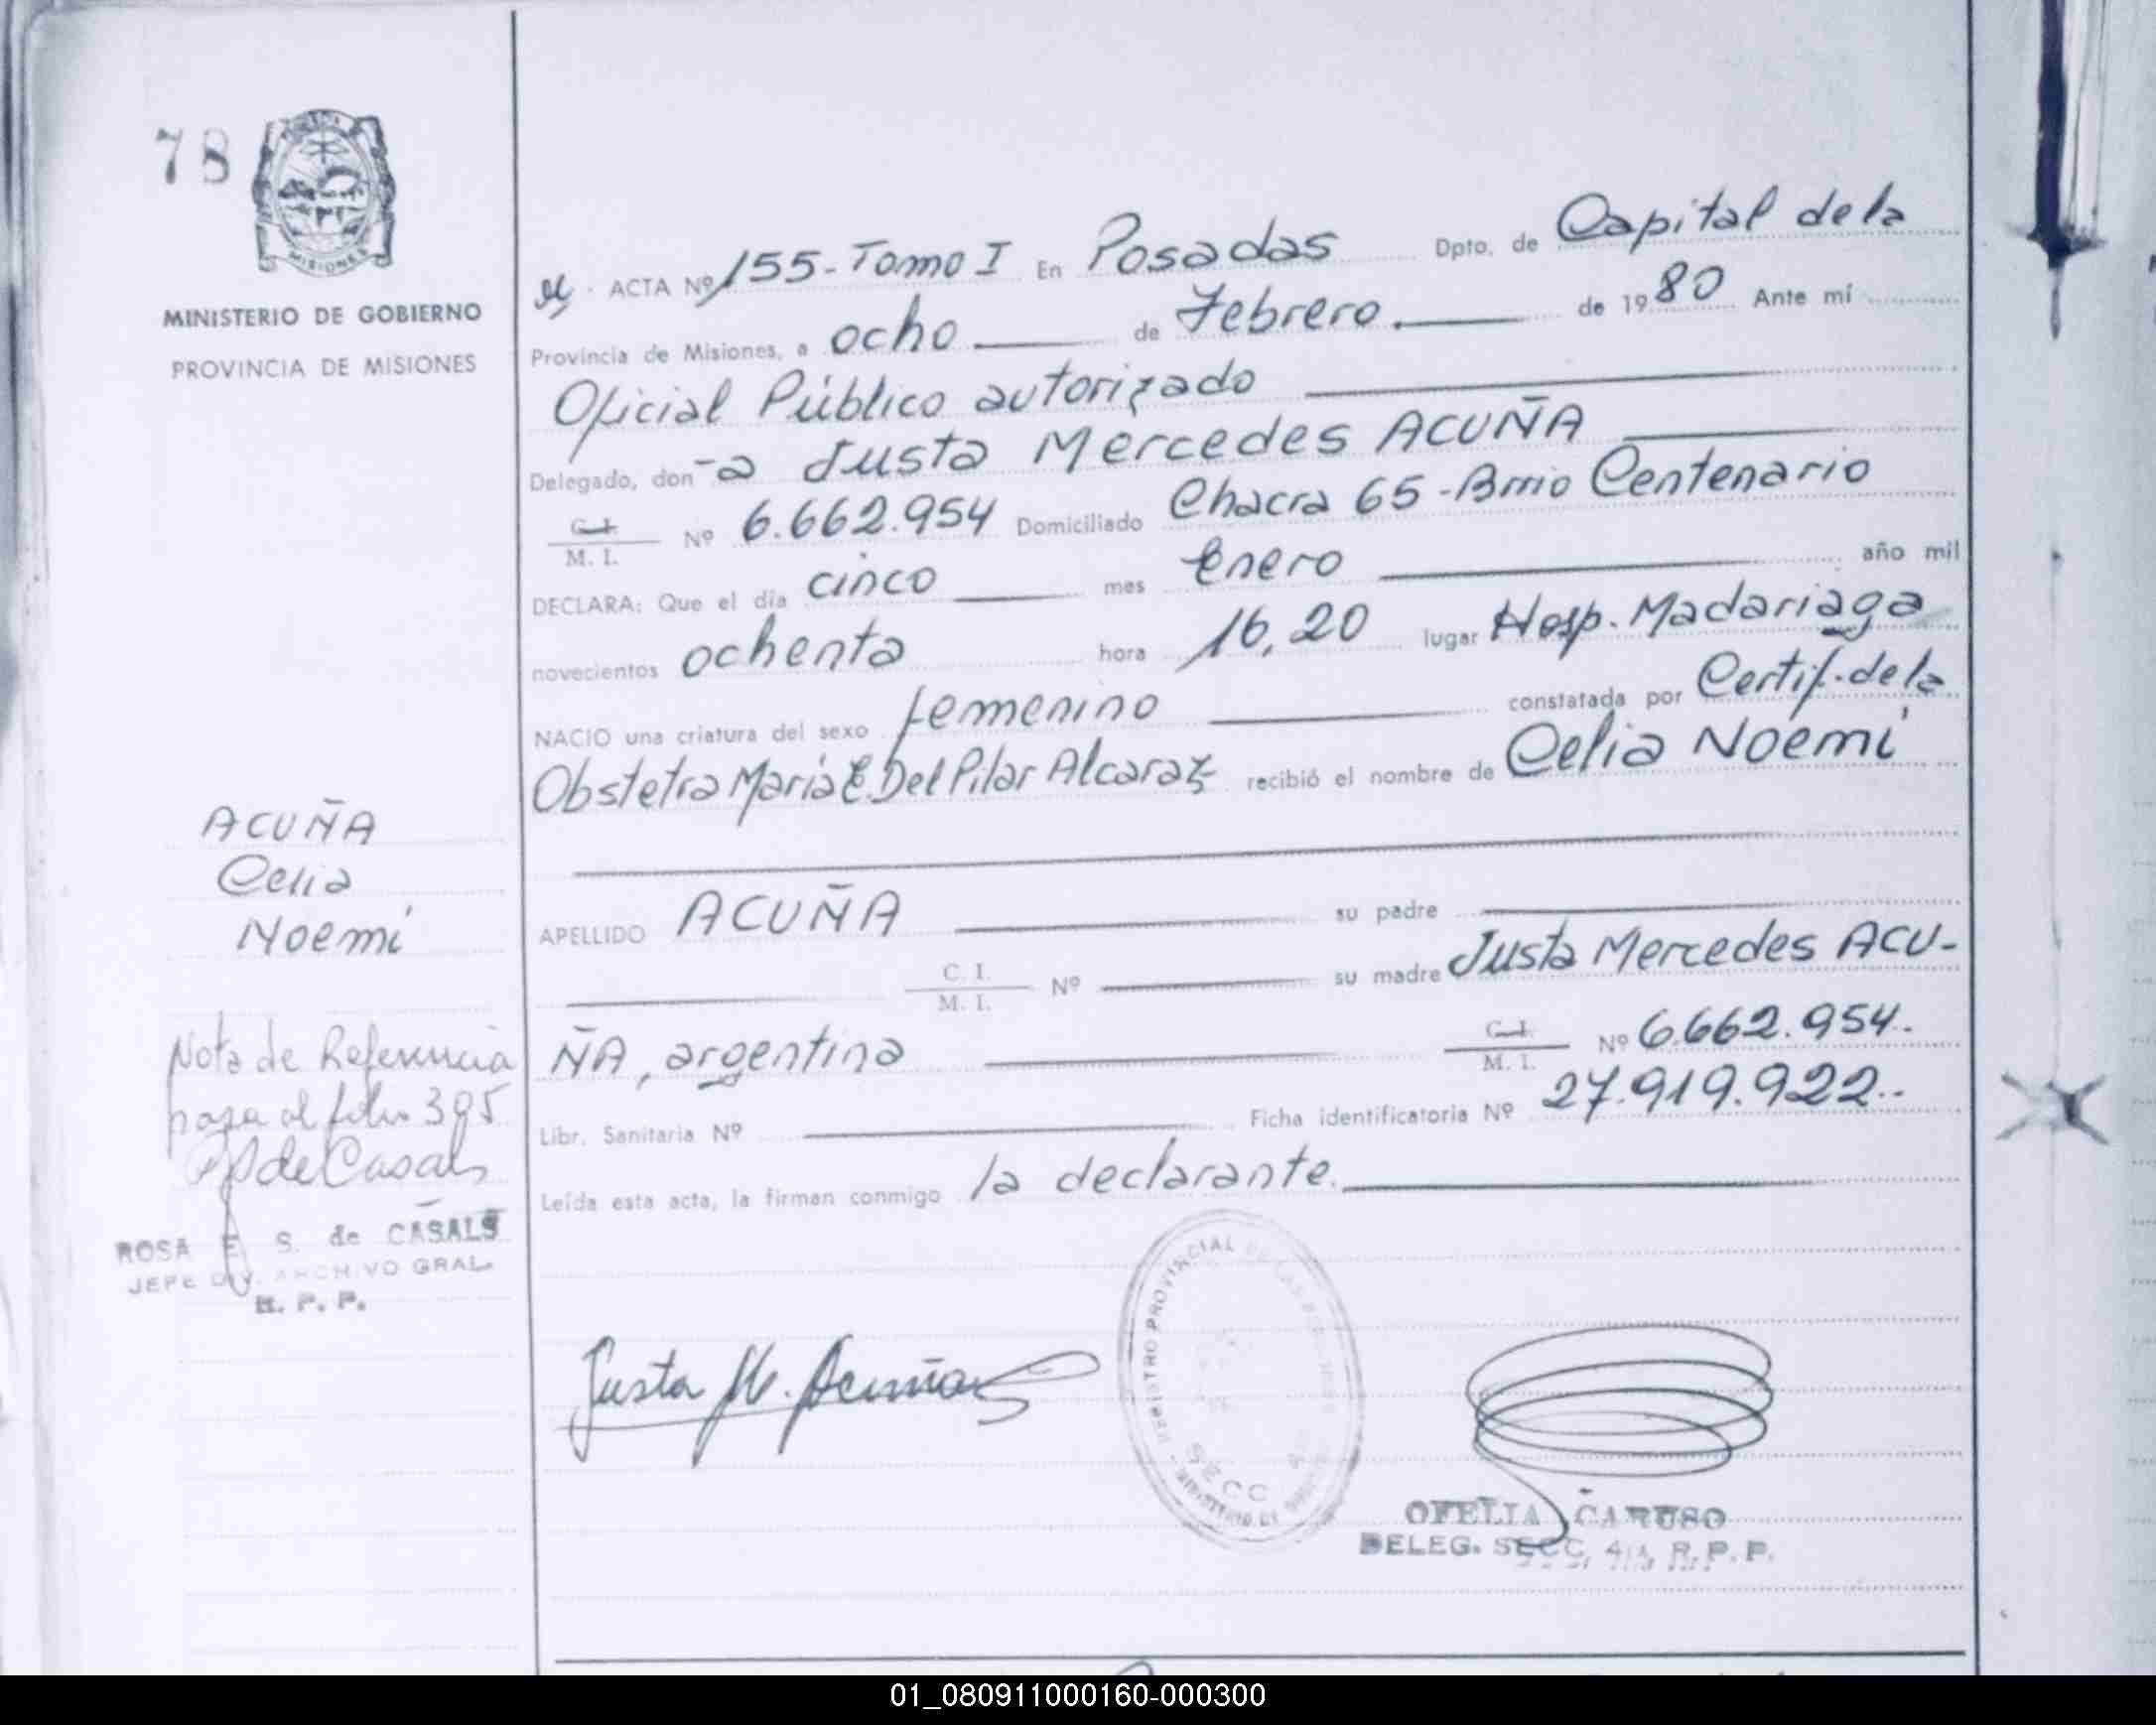 78
MISIONES
MINISTERIO DE GOBIERNO
PROVINCIA DE MISIONES
ACTA Nº 155-Tomo I En Posadas Dpto. de Capital de la
Provincia de Misiones, a ocho de Febrero. de 1980 Ante mí
Oficial Público autorizado
Delegado, don-a Justa Mercedes ACUÑA
C. I.
M. I. Nº 6.662.954 Domiciliado Chacra 65-Brrio Centenario
DECLARA: Que el día cinco mes Enero año mil
novecientos ochenta hora 16,20 lugar Hosp. Madariaga
NACIO una criatura del sexo femenino constatada por Certif. de la
Obstetra María E. Del Pilar Alcaraz recibió el nombre de Celia Noemí
APELLIDO ACUÑA su padre
C. I.
M. I. Nº su madre Justa Mercedes ACU-
ÑA, argentina C. I.
M. I. Nº 6.662.954.
Libr. Sanitaria Nº Ficha identificatoria Nº 27.919.922..
Leída esta acta, la firman conmigo la declarante.
ACUÑA
Celia
Noemí
Nota de Referencia
pasa al folio 395
de Casals
ROSA E. S. de CASALS
JEFE DIV. ARCHIVO GRAL.
R. P. P.
Justa M. Acuña
REGISTRO PROVINCIAL DE LAS PERSONAS
SECC 4
MINISTERIO DE GOBIERNO
OFELIA CARUSO
DELEG. SECC. 4ta R. P. P.
01_080911000160-000300